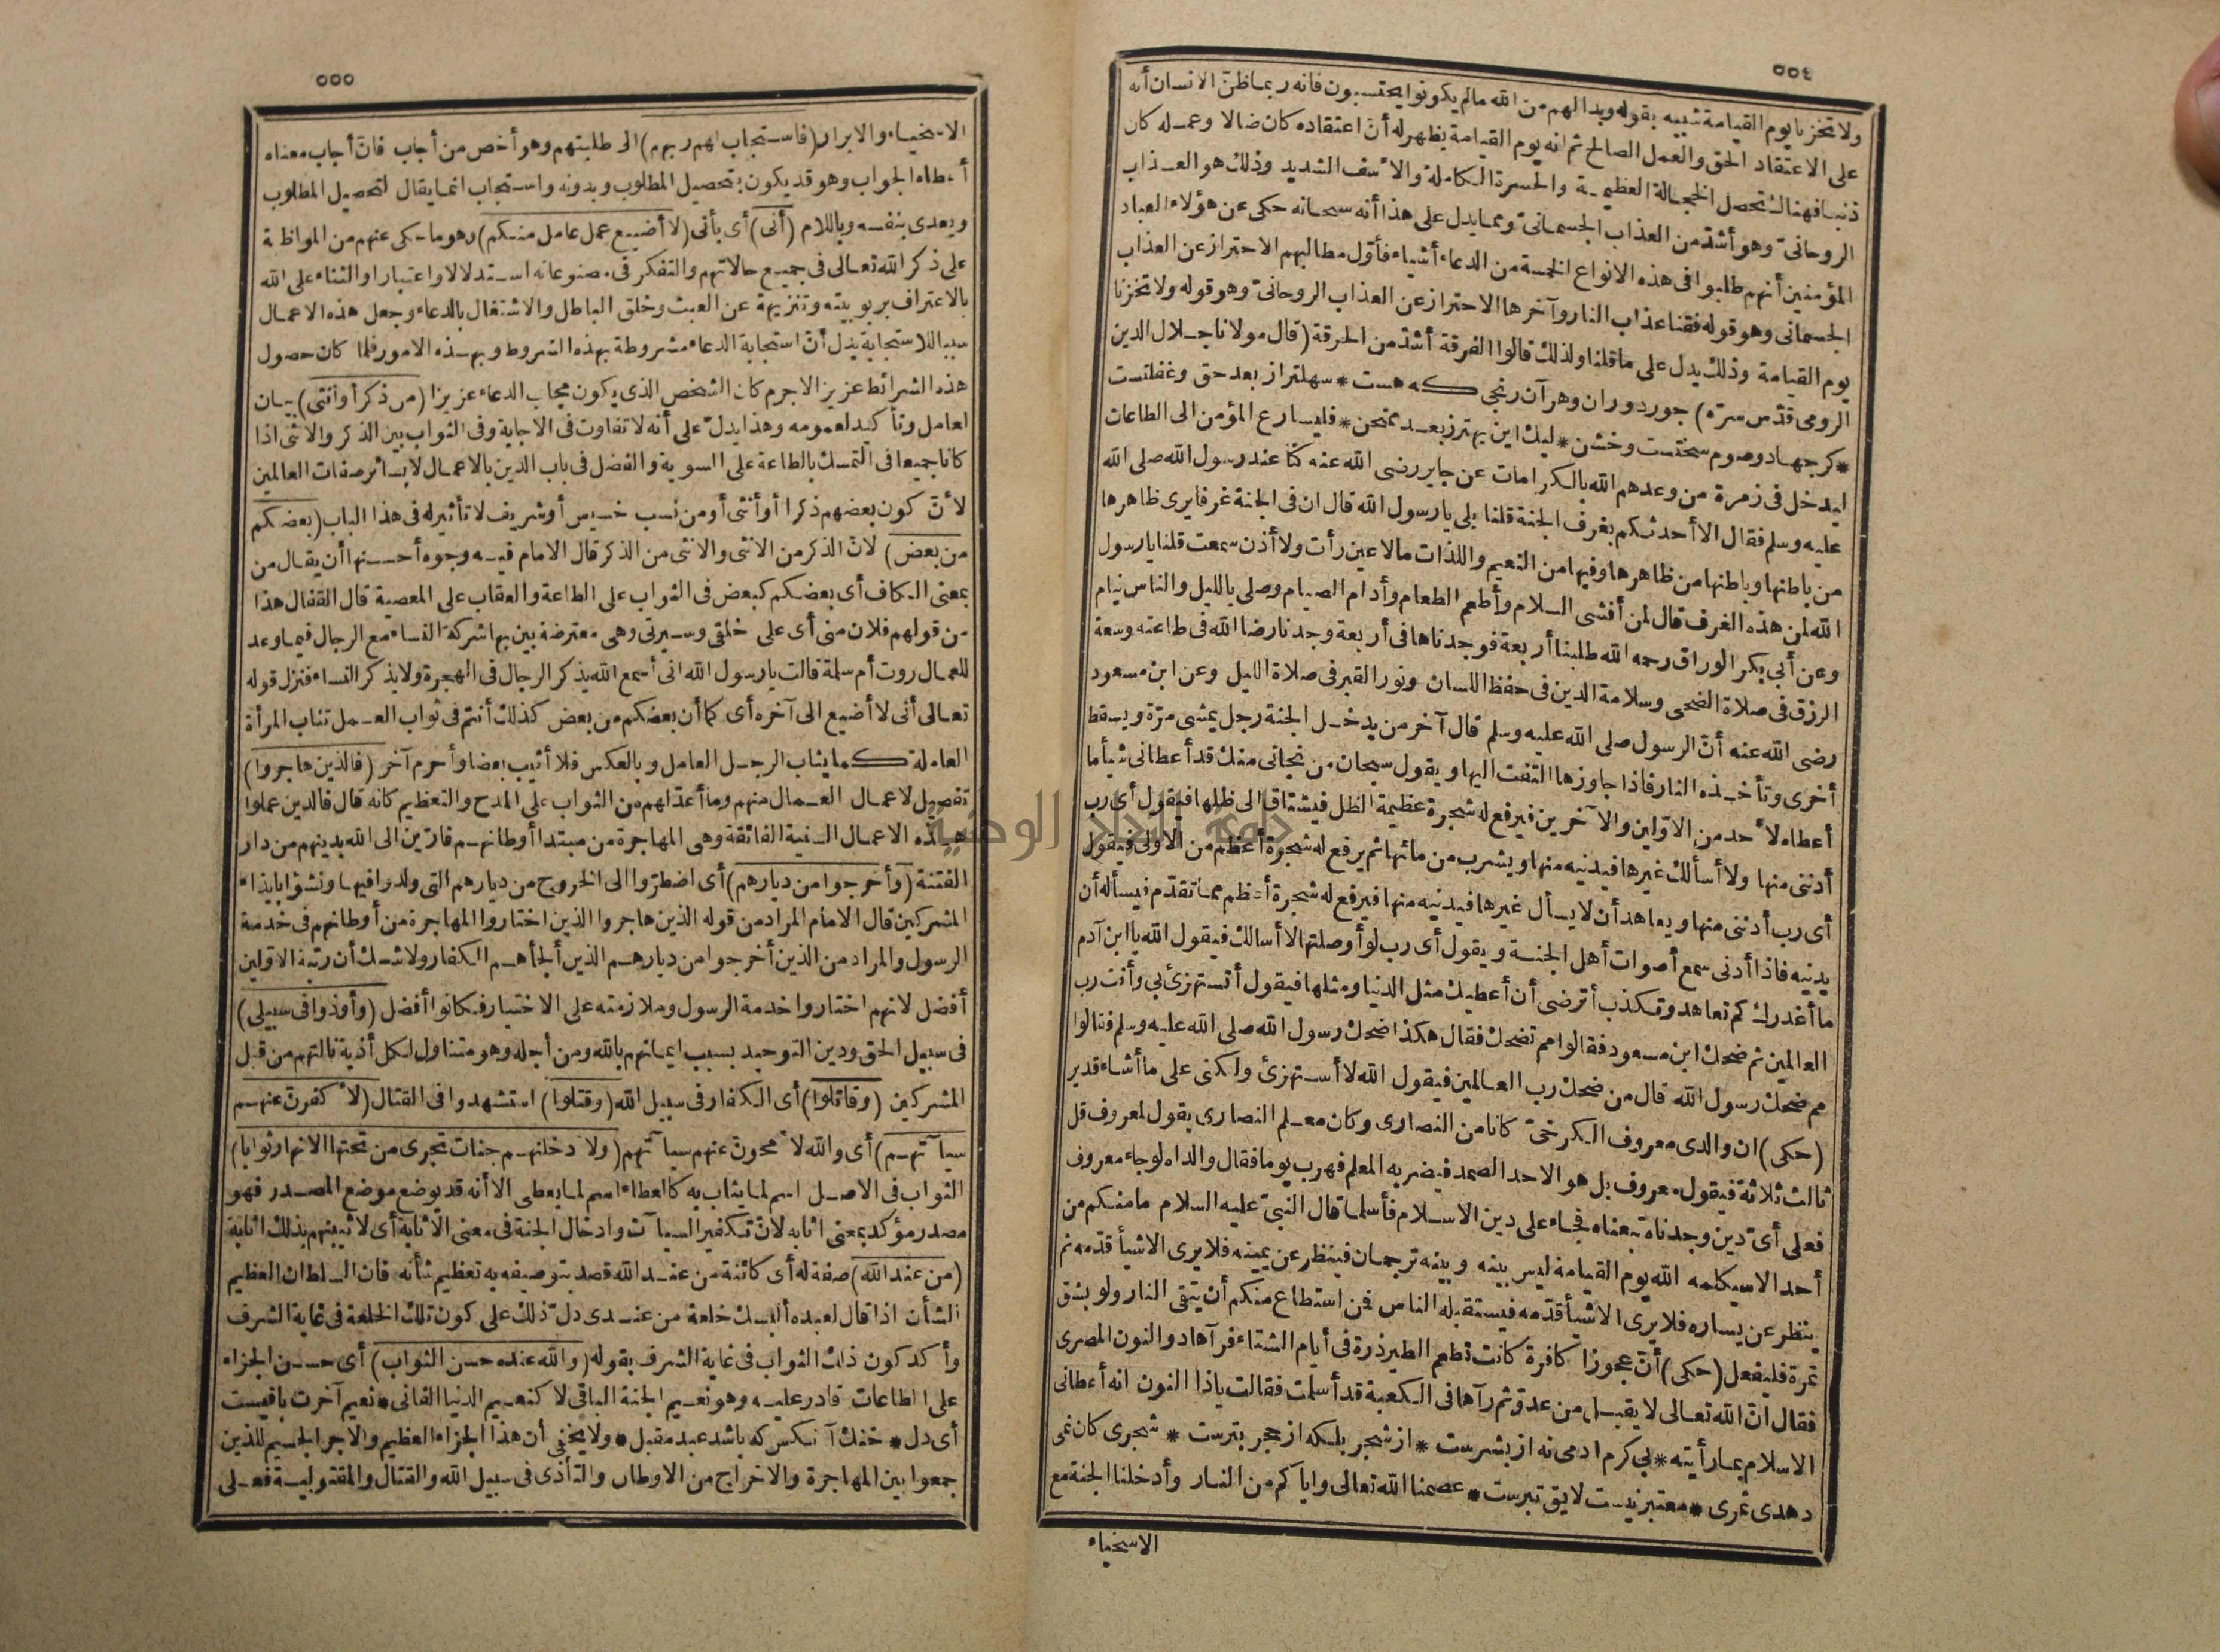 ٥٥٤
ولا تخزنا يوم القيامة شبيه بقوله وبدا لهم من الله ما لم يكونوا يحتسبون فانه ربما ظن الانسان أنه
على الاعتقاد الحق والعمل الصالح ثم انه يوم القيامة يظهر له أنّ اعتقاده كان ضالا وعمله كان
ذنبا فهنالك تحصل الخجالة العظيمة والحسرة الكاملة والاسف الشديد وذلك هو العذاب
الروحانىّ وهو أشدّ من العذاب الجسمانىّ ومما يدل على هذا أنه سبحانه حكى عن هؤلاء العباد
المؤمنين أنهم طلبوا فى هذه الانواع الخمسة من الدعاء أشياء فأوّل مطالبهم الاحتراز عن العذاب
الجسمانى وهو قوله فقنا عذاب النار وآخرها الاحتراز عن العذاب الروحانىّ وهو قوله ولا تخزنا
يوم القيامة وذلك يدل على ما قلنا ولذلك قالوا الفرقة أشدّ من الحرقة (قال مولانا جلال الدين
الرومى قدّس سرّه) جور دوران وهر آن رنجى كه هست * سهلتر از بعد حق وغفلتست
* كر جهاد وصوم سختست وخشن * ليك اين بهتر ز بعد ممتحن * فليسارع المؤمن الى الطاعات
ليدخل فى زمرة من وعدهم الله بالكرامات عن جابر رضى الله عنه كنّا عند رسول الله صلى الله
عليه وسلم فقال الا أحدثكم بغرف الجنة قلنا بلى يا رسول الله قال ان فى الجنة غرفا يرى ظاهرها
من باطنها وباطنها من ظاهرها وفيها من النعيم واللذات ما لا عين رأت ولا أذن سمعت قلنا يا رسول
الله لمن هذه الغرف قال لمن أفشى السلام وأطعم الطعام وأدام الصيام وصلى بالليل والناس نيام
وعن أبى بكر الوراق رحمه الله طلبنا أربعة فوجدناها فى أربعة وجدنا رضا الله فى طاعته وسعة
الرزق فى صلاة الضحى وسلامة الدين فى حفظ اللسان ونور القبر فى صلاة الليل وعن ابن مسعود
رضى الله عنه أنّ الرسول صلى الله عليه وسلم قال آخر من يدخل الجنة رجل يمشى مرّة ويسقط
أخرى وتأخذه النار فاذا جاوزها التفت اليها ويقول سبحان من نجانى منك قد أعطانى شيأ ما
أعطاه لأحد من الاوّلين والآخرين فيرفع له شجرة عظيمة الظل فيشتاق الى ظلها فيقول أى رب
أدننى منها ولا أسألك غيرها فيدنيه منها ويشرب من مائها ثم يرفع له شجرة أعظم من الاولى فيقول
أى رب أدننى منها ويعاهد أن لا يسأل غيرها فيدنيه منها فيرفع له شجرة أعظم مما تقدّم فيسأله أن
يدنيه فاذا أدنى سمع أصوات أهل الجنة ويقول أى رب لو أوصلتها لا أسالك فيقول الله يا ابن آدم
ما أغدرك كم تعاهد وتكذب أترضى أن أعطيك مثل الدنيا ومثلها فيقول أتستهزئ بى وأنت رب
العالمين ثم ضحك ابن مسعود فقالوا مم تضحك فقال هكذا ضحك رسول الله صلى الله عليه وسلم فقالوا
مم ضحك رسول الله قال من ضحك رب العالمين فيقول الله لا أستهزئ ولكنى على ما أشاء قدير
(حكى) ان والدى معروف الكرخىّ كانا من النصارى وكان معلم النصارى يقول لمعروف قل
ثالث ثلاثة فيقول معروف بل هو الاحد الصمد فيضربه المعلم فهرب يوما فقال والداه لو جاء معروف
فعلى أىّ دين وجدناه تبعناه فجاء على دين الاسلام فأسلما قال النبىّ عليه السلام ما منكم من
أحد الا سيكلمه الله يوم القيامة ليس بينه وبينه ترجمان فينظر عن يمينه فلا يرى الا شيأ قدّمه ثم
ينظر عن يساره فلا يرى الا شيأ قدّمه فيستقبله الناس فمن استطاع منكم أن يتقى النار ولو بشق
تمرة فليفعل (حكى) أنّ عجوزا كافرة كانت تطعم الطير ذرة فى أيام الشتاء فرآها ذو النون المصرى
فقال انّ الله تعالى لا يقبل من عدوّ ثم رآها فى الكعبة قد أسلمت فقالت ياذا النون انه أعطانى
الاسلام بما رأيته * بى كرم ادمى نه از بشرست * از شجر بلكه از حجر بترست * شجرى كان نمى
دهدى ثمرى * معتبر نيست لايق تبرست * عصمنا الله تعالى واياكم من النار وأدخلنا الجنة مع
الاسخياء
٥٥٥
الاسخياء والابرار (فاستجاب لهم ربهم) الى طلبتهم وهو أخص من أجاب فانّ أجاب معناه
أعطاه الجواب وهو قد يكون بتحصيل المطلوب وبدونه واستجاب انما يقال لتحصيل المطلوب
ويعدى بنفسه وباللام (أنى) أى بأنى (لا أضيع عمل عامل منكم) وهو ما حكى عنهم من المواظبة
على ذكر الله تعالى فى جميع حالاتهم والتفكر فى مصنوعاته استدلالا واعتبارا والثناء على الله
بالاعتراف بربوبيته وتنزيهه عن العبث وخلق الباطل والاشتغال بالدعاء وجعل هذه الاعمال
سببا للاستجابة يدل أنّ استجابة الدعاء مشروطة بهذه الشروط وبهذه الامور فلما كان حصول
هذه الشرائط عزيزا لا جرم كان الشخص الذى يكون مجاب الدعاء عزيزا (من ذكر أو أنثى) بيان
لعامل وتأكيد لعمومه وهذا يدلّ على أنه لا تفاوت فى الاجابة وفى الثواب بين الذكر والانثى اذا
كانا جميعا فى التمسك بالطاعة على السوية والفضل فى باب الدين بالاعمال لا بسائر صفات العالمين
لأنّ كون بعضهم ذكرا أو أنثى أو من نسب خسيس أو شريف لا تأثير له فى هذا الباب (بعضكم
من بعض) لانّ الذكر من الانثى والانثى من الذكر قال الامام فيه وجوه أحسنها أن يقال من
بمعنى الكاف أى بعضكم كبعض فى الثواب على الطاعة والعقاب على المعصية قال القفال هذا
من قولهم فلان منى أى على خلقى وسيرتى وهى معترضة بين بها شركة النساء مع الرجال فيما وعد
للعمال روت أم سلمة قالت يا رسول الله انى أسمع الله يذكر الرجال فى الهجرة ولا يذكر النساء فنزل قوله
تعالى أنى لا أضيع الى آخره أى كما أن بعضكم من بعض كذلك أنتم فى ثواب العمل تثاب المرأة
العاملة كما يثاب الرجل العامل وبالعكس فلا أثيب بعضا وأحرم آخر (فالذين هاجروا)
تفصيل لاعمال العمال منهم وما أعدّ لهم من الثواب على المدح والتعظيم كانه قال فالذين عملوا
هذه الاعمال السنية الفائقة وهى المهاجرة من مبتدا أوطانهم فارّين الى الله بدينهم من دار
الفتنة (وأخرجوا من ديارهم) أى اضطرّوا الى الخروج من ديارهم التى ولدوا فيها ونشؤا بايذاء
المشركين قال الامام المراد من قوله الذين هاجروا الذين اختاروا المهاجرة من أوطانهم فى خدمة
الرسول والمراد من الذين أخرجوا من ديارهم الذين ألجأهم الكفار ولا شك أن رتبة الاوّلين
أفضل لانهم اختاروا خدمة الرسول وملازمته على الاختيار فكانوا أفضل (وأوذوا فى سبيلى)
فى سبيل الحق ودين التوحيد بسبب ايمانهم بالله ومن أجله وهو متناول لكل أذية نالتهم من قبل
المشركين (وقاتلوا) أى الكفار فى سبيل الله (وقتلوا) استشهدوا فى القتال (لأكفرنّ عنهم
سيآتهم) أى والله لأمحونّ عنهم سيآتهم (ولادخلنهم جنات تجرى من تحتها الانهار ثوابا)
الثواب فى الاصل اسم لما يثاب به كالعطاء اسم لما يعطى الا أنه قد يوضع موضع المصدر فهو
مصدر مؤكد بمعنى اثابه لانّ تكفير السيآت وادخال الجنة فى معنى الاثابة أى لاثيبنهم بذلك اثابة
(من عند الله) صفة له أى كائنة من عند الله قصد بتوصيفه به تعظيم شأنه فان السلطان العظيم
الشأن اذا قال لعبده ألبسك خلعة من عندى دلّ ذلك على كون تلك الخلعة فى غاية الشرف
وأكد كون ذلك الثواب فى غاية الشرف بقوله (والله عنده حسن الثواب) أى حسن الجزاء
على الطاعات قادر عليه وهو نعيم الجنة الباقى لا كنعيم الدنيا الفانى * نعيم آخرت باقيست
أى دل * خنك آنكس كه باشد عبد مقبل * ولا يخفى أن هذا الجزاء العظيم والاجر الجسيم للذين
جمعوا بين المهاجرة والاخراج من الاوطان والتأذى فى سبيل الله والقتال والمقتولية فعلى